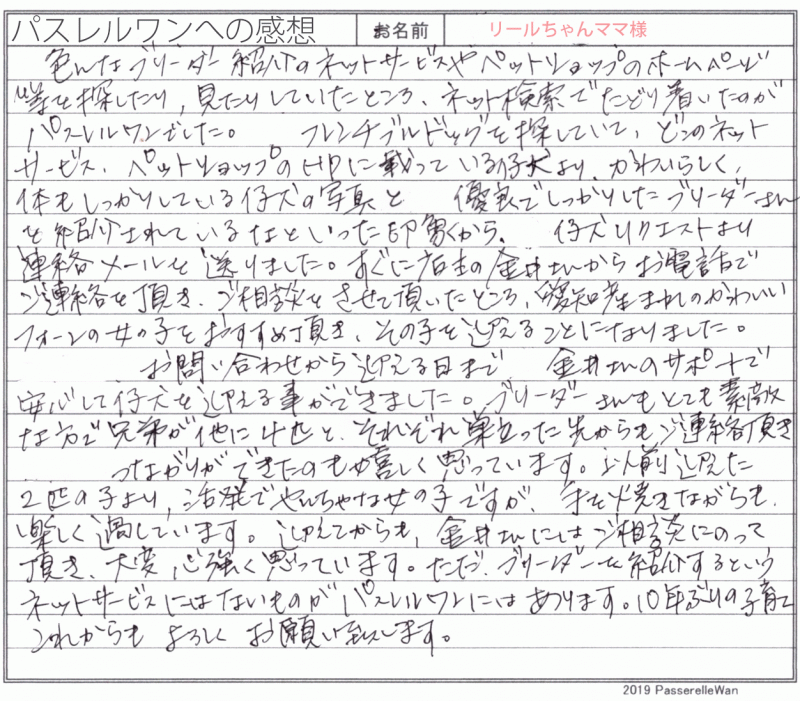 パスレルワンへの感想 お名前 リールちゃんママ様
色んなブリーダー紹介のネットサービスやペットショップのホームページ
等を探したり、見たりしていたところ、ネット検索でたどり着いたのが
パスレルワンでした。 フレンチブルドッグを探していて、どこのネット
サービス、ペットショップのHPに載っている仔犬より、かわいらしく、
体もしっかりしている仔犬の写真と 優良でしっかりしたブリーダーさん
を紹介されているなといった印象から、 仔犬リクエストより
連絡メールを送りました。すぐに店主の金井さんからお電話で
ご連絡を頂き、ご相談をさせて頂いたところ、愛知産まれのかわいい
フォーンの女の子をおすすめ頂き、その子を迎えることになりました。
お問い合わせから迎える日まで 金井さんのサポートで
安心して仔犬を迎える事ができました。ブリーダーさんもとても素敵
な方で兄弟が他に4匹と、それぞれ巣立った先からもご連絡頂き
つながりができたのも嬉しく思っています。以前迎えた
2匹の子より、活発でやんちゃな女の子ですが、手を焼きながらも、
楽しく過しています。迎えてからも、金井さんにはご相談にのって
頂き、大変心強く思っています。ただ、ブリーダーを紹介するという
ネットサービスにはないものがパスレルワンにはあります。10年ぶりの子育て
これからもよろしくお願い致します。
2019 PasserelleWan